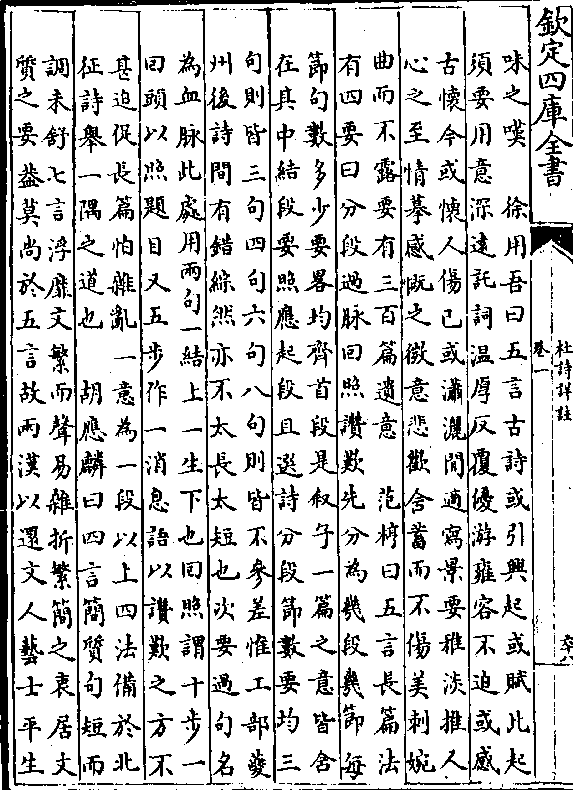 欽定四庫全書
杜詩詳註
卷一
六八
味之嘆　徐用吾曰五言古詩或引興起或賦比起
須要用意深遠託詞温厚反覆優游雍容不迫或感
古懷今或懷人傷已或瀟灑閒適寫景要雅淡推人
心之至情摹感慨之微意悲歡含蓄而不傷美刺婉
曲而不露要有三百篇遺意　范梈曰五言長篇法
有四要曰分段過脉回照讚歎先分為幾段幾節每
節句數多少要畧均齊首段是叙子一篇之意皆含
在其中結段要照應起段且選詩分段節數要均三
句則皆三句四句六句八句則皆不參差惟工部夔
州後詩間有錯綜然亦不太長太短也次要過句名
為血脉此處用兩句一結上一生下也回照謂十步一
回頭以照題目又五步作一消息語以讚歎之方不
甚迫促長篇怕雜亂一意為一段以上四法備於北
征詩舉一隅之道也　胡應麟曰四言簡質句短而
調未舒七言浮靡文繁而聲易雜折繁簡之衷居文
質之要葢莫尚於五言故兩漢以還文人藝士平生